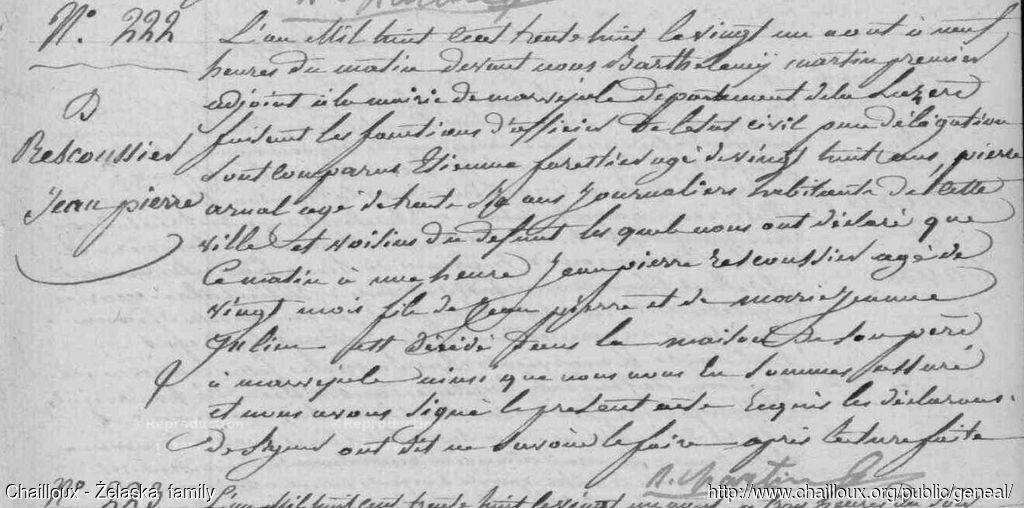 N°. 222
D
Rescoussier
Jean pierre
L'an Mil huit Cent trente huit le vingt un aout à neuf
heures du matin devant nous Barthelemy martin premier
adjoint à la mairie de marvejols département de la Lozere
faisant les fonctions d'officier de l'etat civil par délégation
sont comparus Etienne forestier agé de vingt huit ans, pierre
arnal agé de trente ans Journaliers habitants de Cette
ville et voisins du defunt les quels nous ont déclaré que
Ce matin à une heure Jean pierre rescoussier agé de
vingt mois fils de Jean pierre et de marie Jeanne
Julien est décédé dans la maison de son père
à marvejols ainsi que nous nous en sommes assuré
et nous avons signé le présent acte requis les déclarans
de signer ont dit ne savoir le faire après lecture faite
B. Martin
N° 223
L'an Mil huit cent trente huit le vingt un aout à trois heures du soir
© Reproduction
© Reproduction
Chailloux - Żelaska family
http://www.chailloux.org/public/geneal/